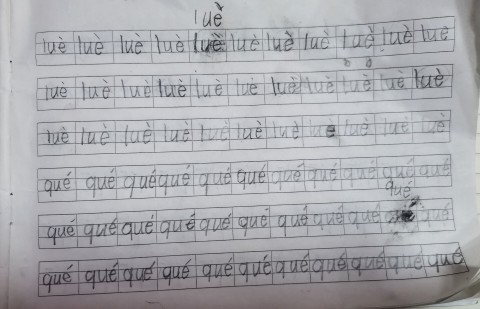 luè
luè luè luè luè luè luè luè luè luè luè luè
luè luè luè luè luè luè luè luè luè luè luè
luè luè luè luè luè luè luè luè luè luè luè
qué qué qué qué qué qué qué qué qué qué qué
qué
qué qué qué qué qué qué qué qué qué qué
qué qué qué qué qué qué qué qué qué qué qué